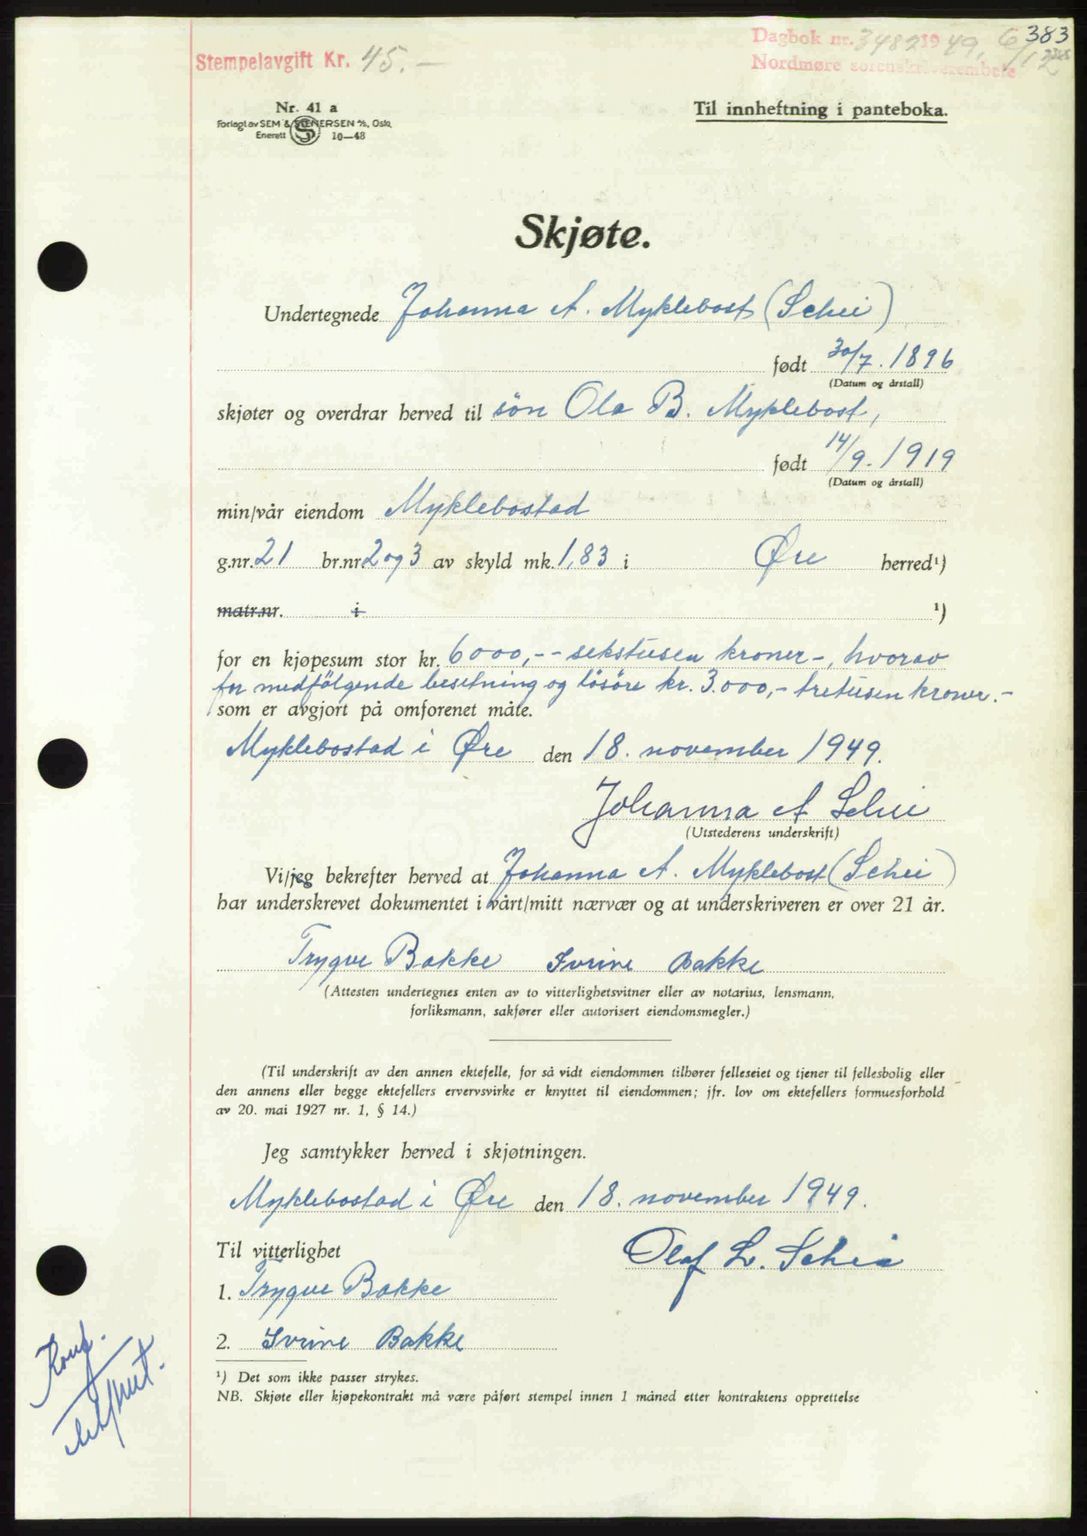 Stempelavgift Kr. 45.—
Dagbok nr. 3482 1949, 6/12
Nordmøre sorenskriverembete
383
Nr. 41 a
Forlagt av SEM & STENERSEN A/S, Oslo,
Enerett 10—48
Til innheftning i panteboka.
Skjøte.
Undertegnede Johanna A. Myklebost (Schei)
født 30/7. 1896
(Datum og årstall)
skjøter og overdrar herved til sön Ola B. Myklebost,
født 14/9. 1919
(Datum og årstall)
min/vår eiendom Myklebostad
g.nr. 21 br.nr. 2 og 3 av skyld mk. 1,83 i Øre herred¹)
matr.nr. i ¹)
for en kjøpesum stor kr. 6000,-- sekstusen kroner-, hvorav
for medfölgende besetning og lösöre kr. 3.000,- tretusen kroner.-
som er avgjort på omforenet måte.
Myklebostad i Øre den 18. november 1949.
Johanna A Schei
(Utstederens underskrift)
Vi/jeg bekrefter herved at Johanna A. Myklebost (Schei)
har underskrevet dokumentet i vårt/mitt nærvær og at underskriveren er over 21 år.
Trygve Bakke Iverine Bakke
(Attesten undertegnes enten av to vitterlighetsvitner eller av notarius, lensmann,
forliksmann, sakfører eller autorisert eiendomsmegler.)
(Til underskrift av den annen ektefelle, for så vidt eiendommen tilhører felleseiet og tjener til fellesbolig eller
den annens eller begge ektefellers ervervsvirke er knyttet til eiendommen; jfr. lov om ektefellers formuesforhold
av 20. mai 1927 nr. 1, § 14.)
Jeg samtykker herved i skjøtningen.
Myklebostad i Øre den 18. november 1949.
Til vitterlighet
Olaf L. Schei
1. Trygve Bakke
2. Iverine Bakke
Konf.
¹) Det som ikke passer strykes.
NB. Skjøte eller kjøpekontrakt må være påført stempel innen 1 måned etter kontraktens opprettelse